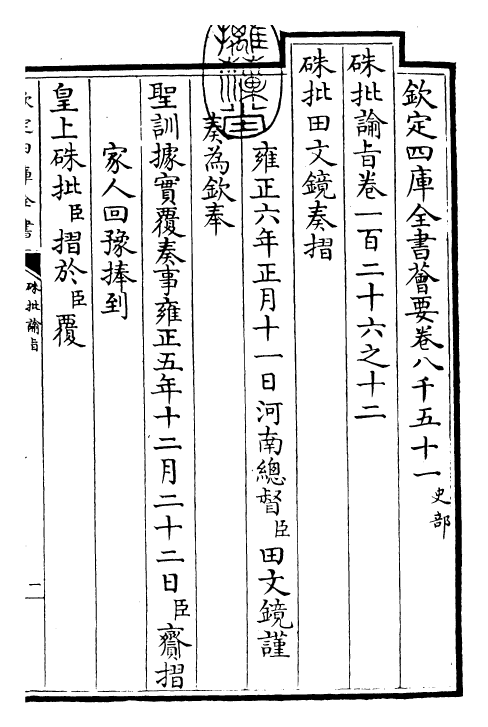 欽定四庫全書薈要卷八千五十一史部
硃批諭旨卷一百二十六之十二
硃批田文鏡奏摺
雍正六年正月十一日河南總督臣田文鏡謹
奏為欽奉
聖訓據實覆奏事雍正五年十二月二十二日臣齎摺
家人回豫捧到
皇上硃批臣摺於臣覆
欽定四庫全書
硃批諭旨
一